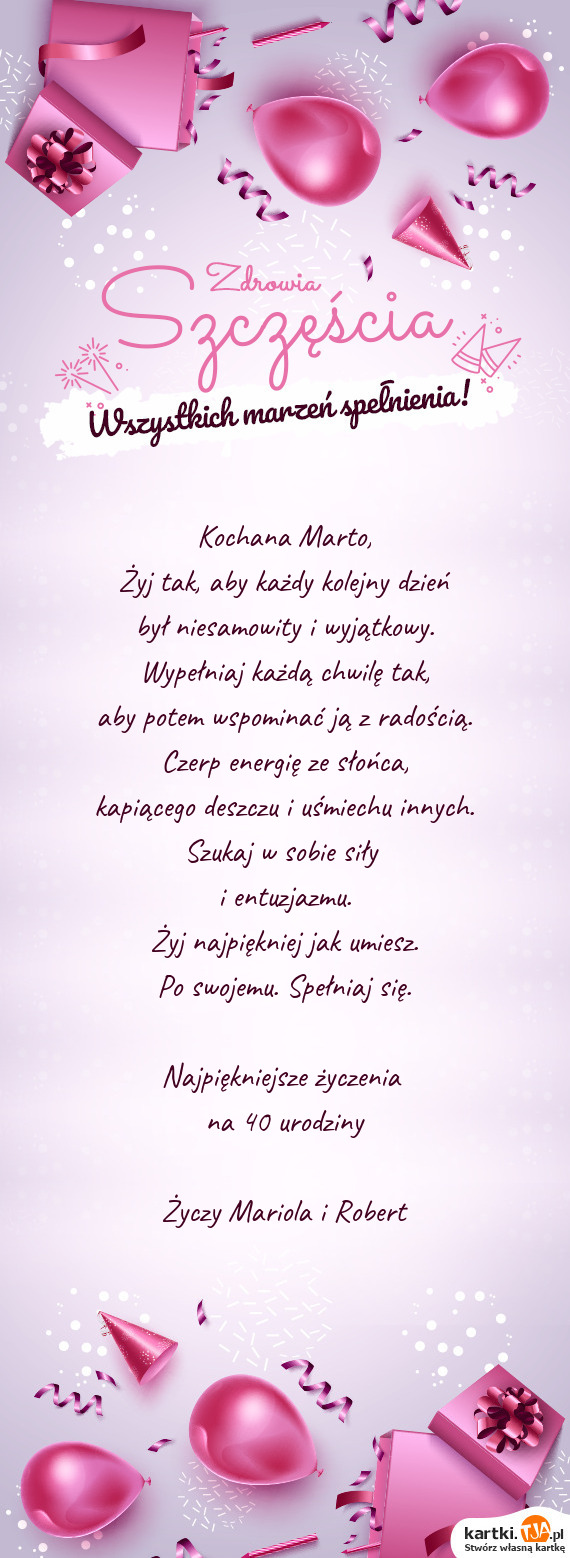 Zdrowia
Szczęścia
Wszystkich marzeń spełnienia!
Kochana Marto,
Żyj tak, aby każdy kolejny dzień
był niesamowity i wyjątkowy.
Wypełniaj każdą chwilę tak,
aby potem wspominać ją z radością.
Czerp energię ze słońca,
kapiącego deszczu i uśmiechu innych.
Szukaj w sobie siły
i entuzjazmu.
Żyj najpiękniej jak umiesz.
Po swojemu. Spełniaj się.
Najpiękniejsze życzenia
na 40 urodziny
Życzy Mariola i Robert
kartki.TJA.pl
Stwórz własną kartkę